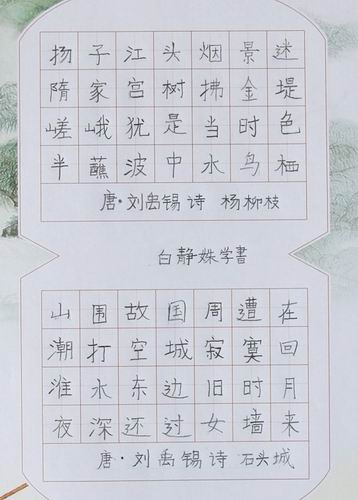 扬子江头烟景迷
隋家宫树拂金堤
嵯峨犹是当时色
半蘸波中水鸟栖
唐·刘禹锡诗 杨柳枝
白静姝学書
山围故国周遭在
潮打空城寂寞回
淮水东边旧时月
夜深还过女墙来
唐·刘禹锡诗 石头城